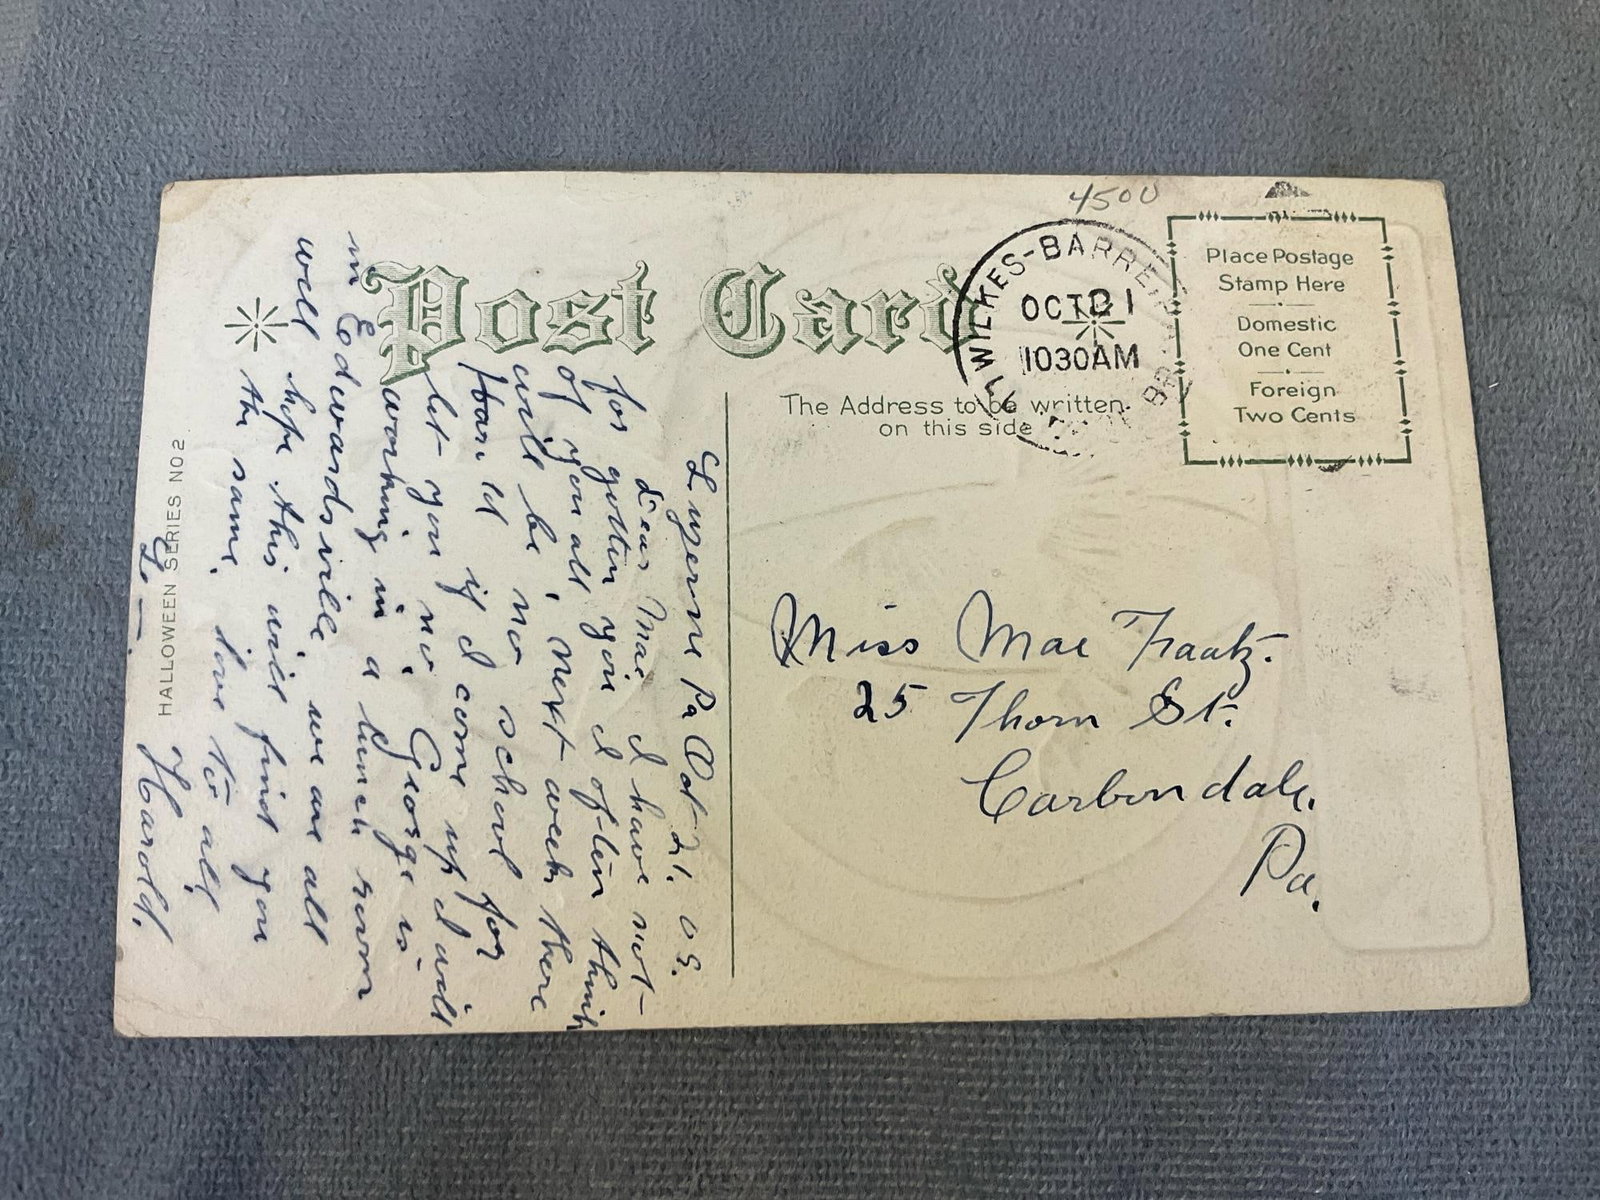 4500
Post Card
WILKES-BARRE
OCT 21
1030AM
Place Postage
Stamp Here
Domestic
One Cent
Foreign
Two Cents
The Address to be written
on this side
HALLOWEEN SERIES NO 2
Luzerne Pa Oct 21. 09.
Dear Mae I have not
for gotten you I often think
of you all, next week there
will be no school for
if I come up I will
let you no. George is
working in a lunch room
in Edwardsville we are all
well hope this will find you
the same. love to all
Harold.
Miss Mae Fraatz.
25 Thorn St.
Carbondale.
Pa.